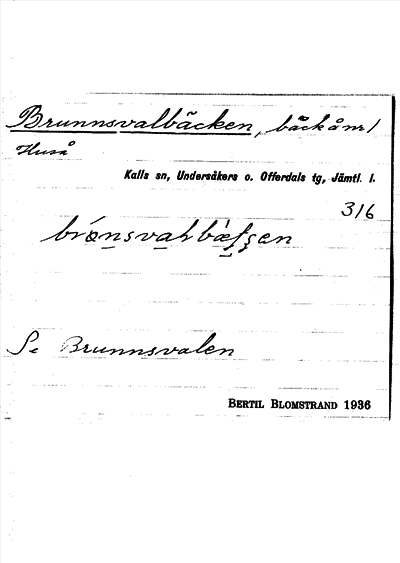 Brunnsvalbäcken, bäck å nr 1
Huså
Kalls sn, Undersåkers o. Offerdals tg, Jämtl. l.
316
Se Brunnsvalen
BERTIL BLOMSTRAND 1936